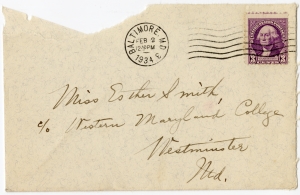 BALTIMORE, MD.
FEB 2
1934
3 3
Miss Esther Smith,
c/o Western Maryland College
Westminster
Md.